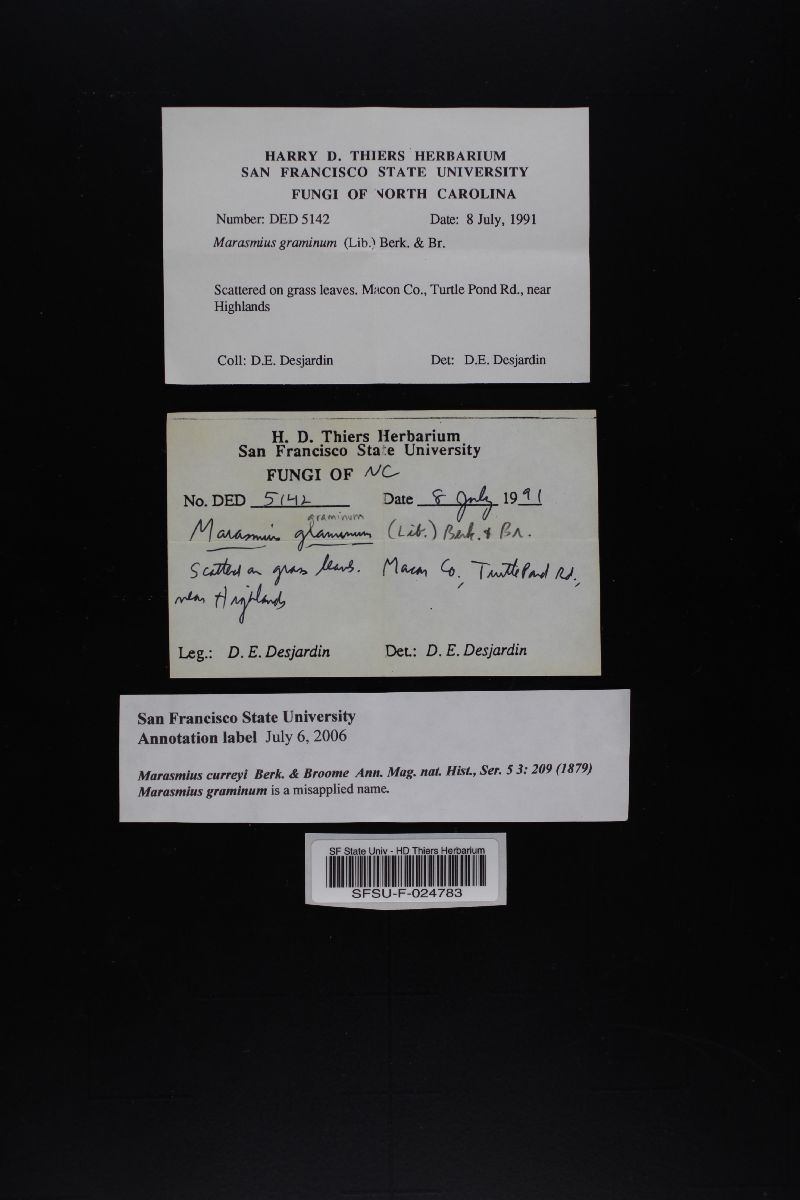 HARRY D. THIERS HERBARIUM
SAN FRANCISCO STATE UNIVERSITY
FUNGI OF NORTH CAROLINA
Number: DED 5142 Date: 8 July, 1991
Marasmius graminum (Lib.) Berk. & Br.
Scattered on grass leaves. Macon Co., Turtle Pond Rd., near
Highlands
Coll: D.E. Desjardin Det: D.E. Desjardin
H. D. Thiers Herbarium
San Francisco State University
FUNGI OF NC
No. DED 5142 Date 8 July 1991
graminum
Marasmius glaminum (Lib.) Berk. & Br.
Scatted on grass leaves. Macon Co., Turtle Pond Rd.,
near Highlands
Leg.: D. E. Desjardin Det.: D. E. Desjardin
San Francisco State University
Annotation label July 6, 2006
Marasmius curreyi Berk. & Broome Ann. Mag. nat. Hist., Ser. 5 3: 209 (1879)
Marasmius graminum is a misapplied name.
SF State Univ - HD Thiers Herbarium
SFSU-F-024783